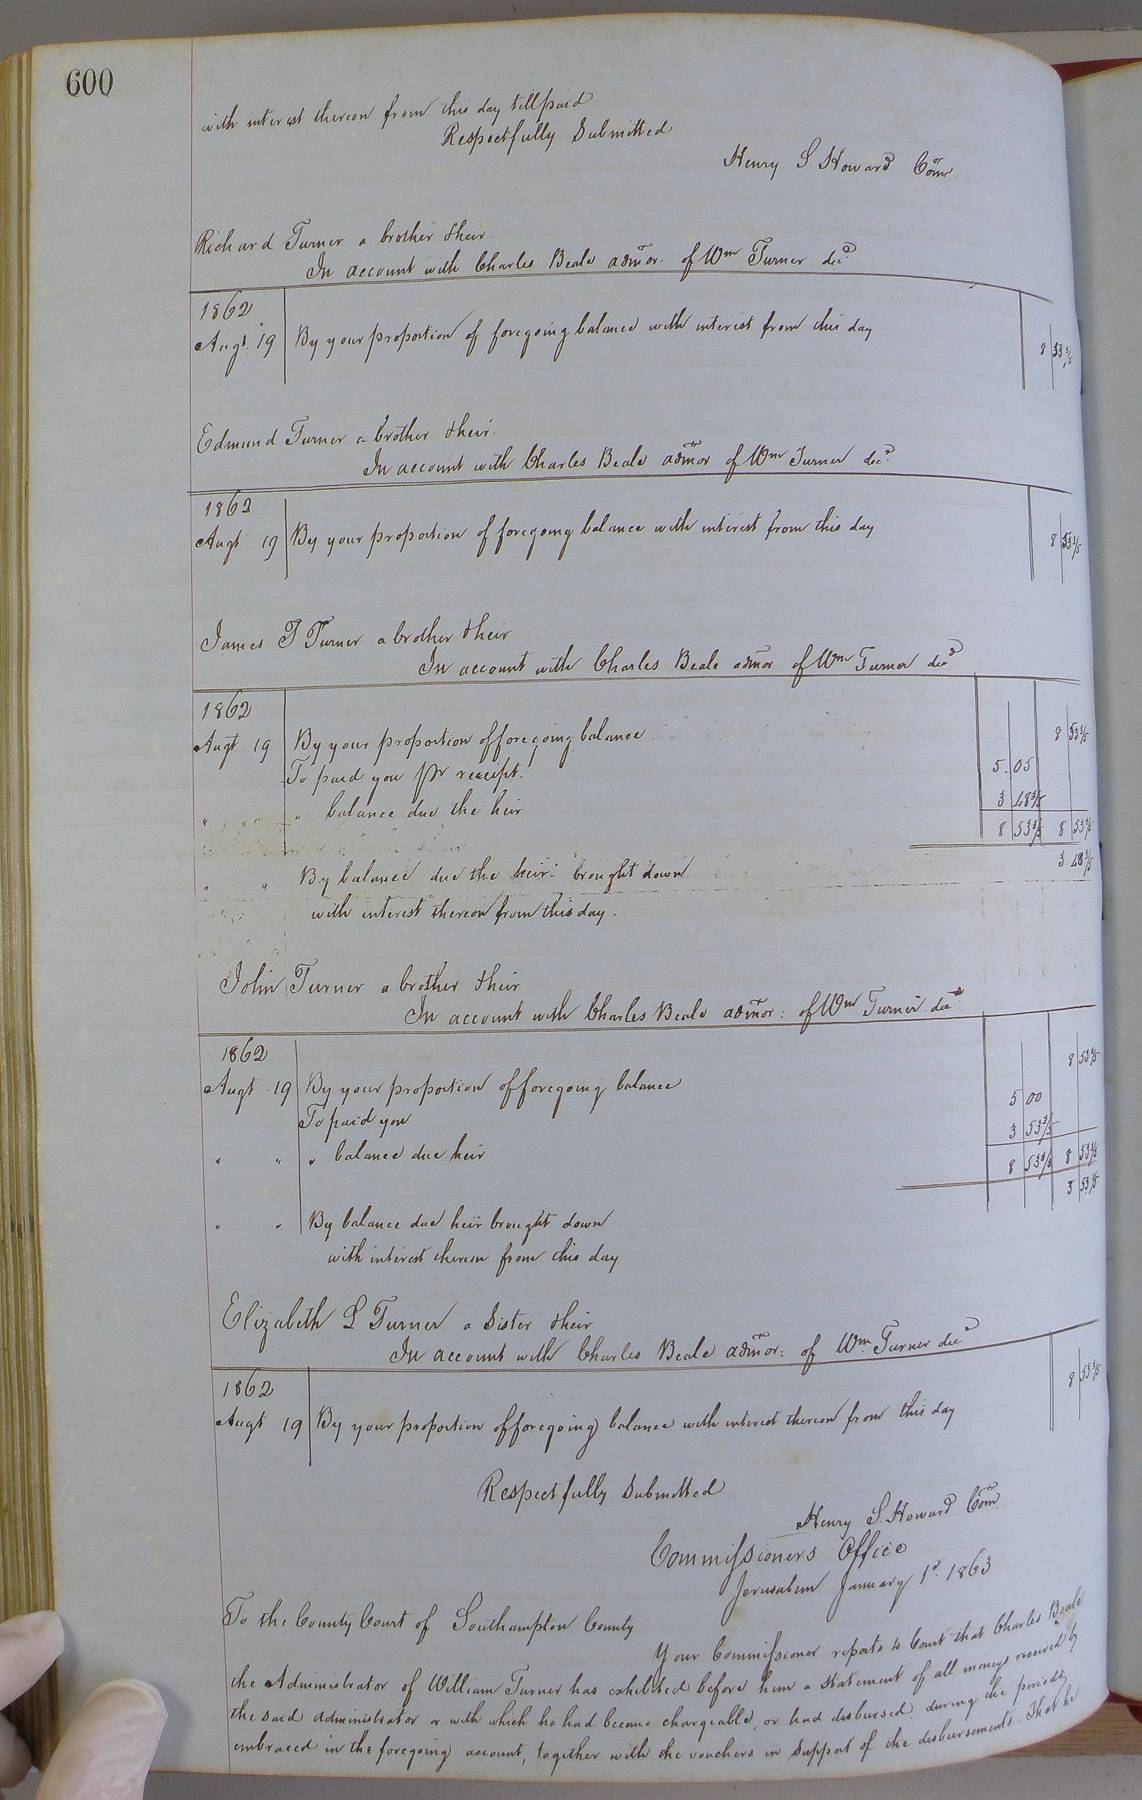 600
with interest thereon from this day till paid
Respectfully Submitted
Henry S Howard Comr
Richard Turner a brother & heir
In account with Charles Beale admor. of Wm Turner decd
1862
Augt. 19 By your proportion of foregoing balance with interest from this day 8 53 3/5
Edmund Turner a brother & heir.
In account with Charles Beale admor of Wm Turner decd.
1862
Augt 19 By your proportion of foregoing balance with interest from this day 8 53 3/5
James T Turner a brother & heir
In account with Charles Beale admor of Wm Turner decd
1862
Augt 19 By your proportion of foregoing balance 8 53 3/5
To paid you pr receipt. 5.05
" " " balance due the heir 3 48 3/5
8 53 3/5 8 53 3/5
" " By balance due the heir brought down 3 48 3/5
with interest thereon from this day.
John Turner a brother & heir
In account with Charles Beale admor: of Wm Turner decd
1862
Augt 19 By your proportion of foregoing balance 8 53 3/5
To paid you 5 00
" " " balance due heir 3 53 3/5
8 53 3/5 8 53 3/5
" " By balance due heir brought down 3 53 3/5
with interest thereon from this day
Elizabeth L Turner a Sister & heir
In account with Charles Beale admor: of Wm. Turner decd
1862
Augt 19 By your proportion of foregoing balance with interest thereon from this day 8 53 3/5
Respectfully Submitted
Henry S. Howard Comr.
Commissioners Office
Jerusalem January 1st. 1863
To the County Court of Southampton County
Your Commissioner reports to Court that Charles Beale
the Administrator of William Turner has exhibited before him a statement of all moneys received by
the said administrator or with which he had become chargeable, or had disbursed during the periods
embraced in the foregoing account, together with the vouchers in support of the disbursements. That he